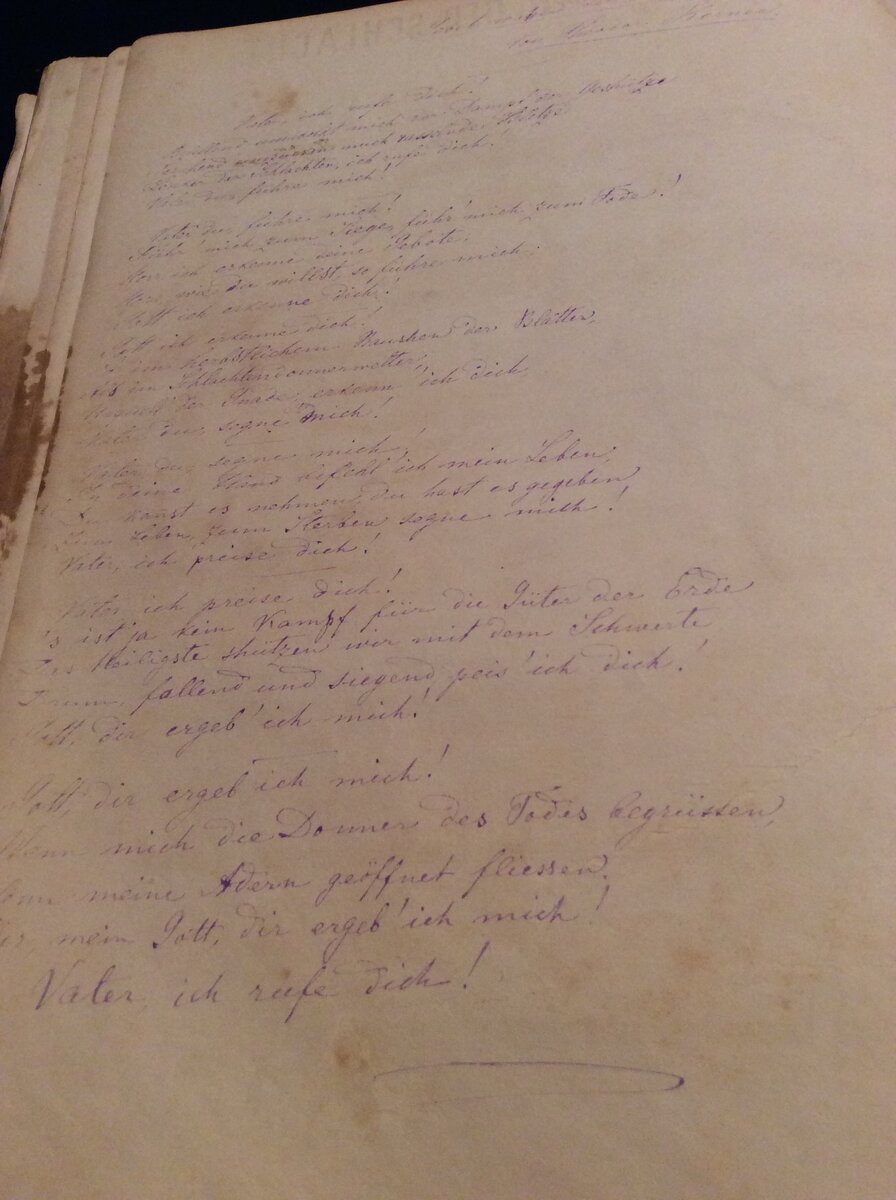 DER SCHLACHT
von Theodor Körner.
Vater, ich rufe dich!
Brüllend umwölkt mich der Dampf der Geschütze
Sprühend umzucken mich rasselnde Blitze
Lenker der Schlachten, ich rufe dich.
Vater du führe mich!
Vater du, führe mich!
Führ' mich zum Siege, führ' mich zum Tode!
Herr ich erkenne deine Gebote.
Herr, wie du willst, so führe mich.
Gott ich erkenne dich!
Gott ich erkenne dich!
So im herbstlichem Rauschen der Blätter,
Als im Schlachtendonnerwetter,
Urquell der Gnade, erkenn' ich dich
Vater du, segne mich!
Vater du, segne mich!
In deine Hand befehl' ich mein Leben,
Du kanst es nehmen, du hast es gegeben,
Zum Leben, zum Sterben segne mich!
Vater, ich preise dich!
Vater ich preise dich!
's ist ja kein Kampf für die Güter der Erde
Das Heiligste shützen wir mit dem Schwerte
Drum, fallend und siegend peis' ich dich!
Gott, dir ergeb' ich mich!
Gott, dir ergeb' ich mich!
Wenn mich die Donner des Todes begrüssen,
Wenn meine Adern geöffnet fliessen.
Dir, mein Gott, dir ergeb' ich mich!
Vater, ich rufe dich!